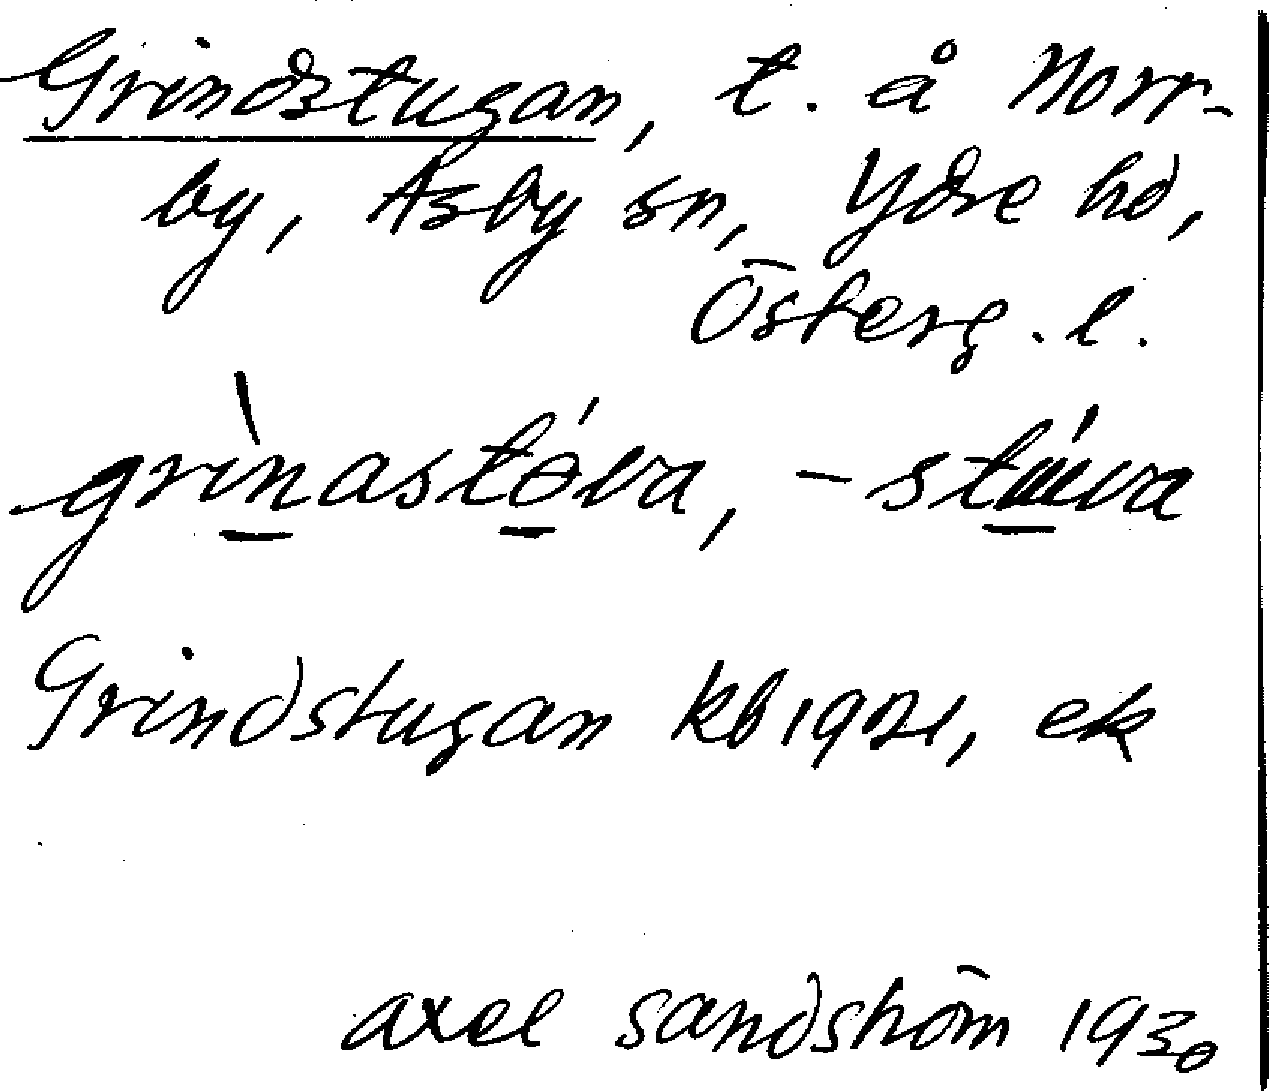 Grindstugan, t. å Norr-
by, Asby sn, Ydre hd,
Österg. l.
grìnastóva, -stúva
Grindstugan kb 1921, ek
axel sandström 1930